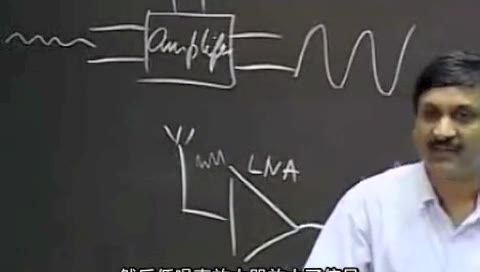 Amplifier
LNA
然后低噪声放大器放大了信号